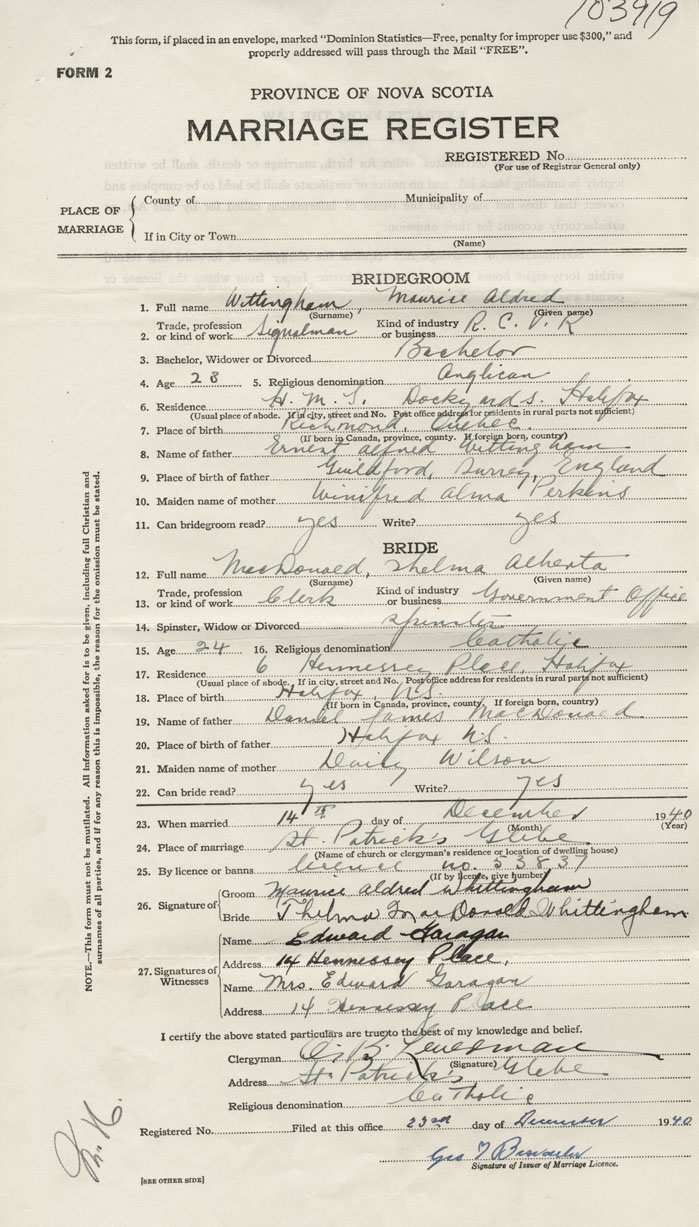 103919
This form, if placed in an envelope, marked "Dominion Statistics—Free, penalty for improper use $300," and
properly addressed will pass through the Mail "FREE".
FORM 2
PROVINCE OF NOVA SCOTIA
MARRIAGE REGISTER
REGISTERED No.
(For use of Registrar General only)
PLACE OF MARRIAGE
County of Municipality of
If in City or Town
(Name)
BRIDEGROOM
1. Full name Wittingham, Maurice Aldred
(Surname) (Given name)
2. Trade, profession or kind of work Signalman Kind of industry or business R. C. V. R
3. Bachelor, Widower or Divorced Bachelor
4. Age 23 5. Religious denomination Anglican
6. Residence H. M. S. Dockyards. Halifax
(Usual place of abode. If in city, street and No. Post office address for residents in rural parts not sufficient)
7. Place of birth Richmond, Quebec.
(If born in Canada, province, county. If foreign born, country)
8. Name of father Ernest Alfred Wittingham
9. Place of birth of father Guildford, Surrey, England
10. Maiden name of mother Winifred Alma Perkins
11. Can bridegroom read? yes Write? yes
BRIDE
12. Full name MacDonald, Thelma Alberta
(Surname) (Given name)
13. Trade, profession or kind of work Clerk Kind of industry or business Government Office
14. Spinster, Widow or Divorced Spinster
15. Age 24 16. Religious denomination Catholic
17. Residence 6 Hennessey Place, Halifax
(Usual place of abode. If in city, street and No., Post office address for residents in rural parts not sufficient)
18. Place of birth Halifax, N.S.
(If born in Canada, province, county. If foreign born, country)
19. Name of father Daniel James MacDonald
20. Place of birth of father Halifax N.S.
21. Maiden name of mother Daisy Wilson
22. Can bride read? yes Write? yes
23. When married 14th day of December 1940
(Month) (Year)
24. Place of marriage St. Patrick's Glebe.
(Name of church or clergyman's residence or location of dwelling house)
25. By licence or banns licence no. 53837
(If by licence, give number)
26. Signature of
Groom Maurice Aldred Whittingham
Bride Thelma MacDonald Whittingham
27. Signatures of Witnesses
Name Edward Garagan
Address 14 Hennessey Place,
Name Mrs. Edward Garagan
Address 14 Hennessey Place
I certify the above stated particulars are true to the best of my knowledge and belief.
Clergyman
(Signature)
Address St. Patrick's Glebe
Religious denomination Catholic
Registered No. Filed at this office 23rd day of December 1940
Signature of Issuer of Marriage Licence.
[SEE OTHER SIDE]
NOTE.—This form must not be mutilated. All information asked for is to be given, including full Christian and
surnames of all parties, and if for any reason this is impossible, the reason for the omission must be stated.